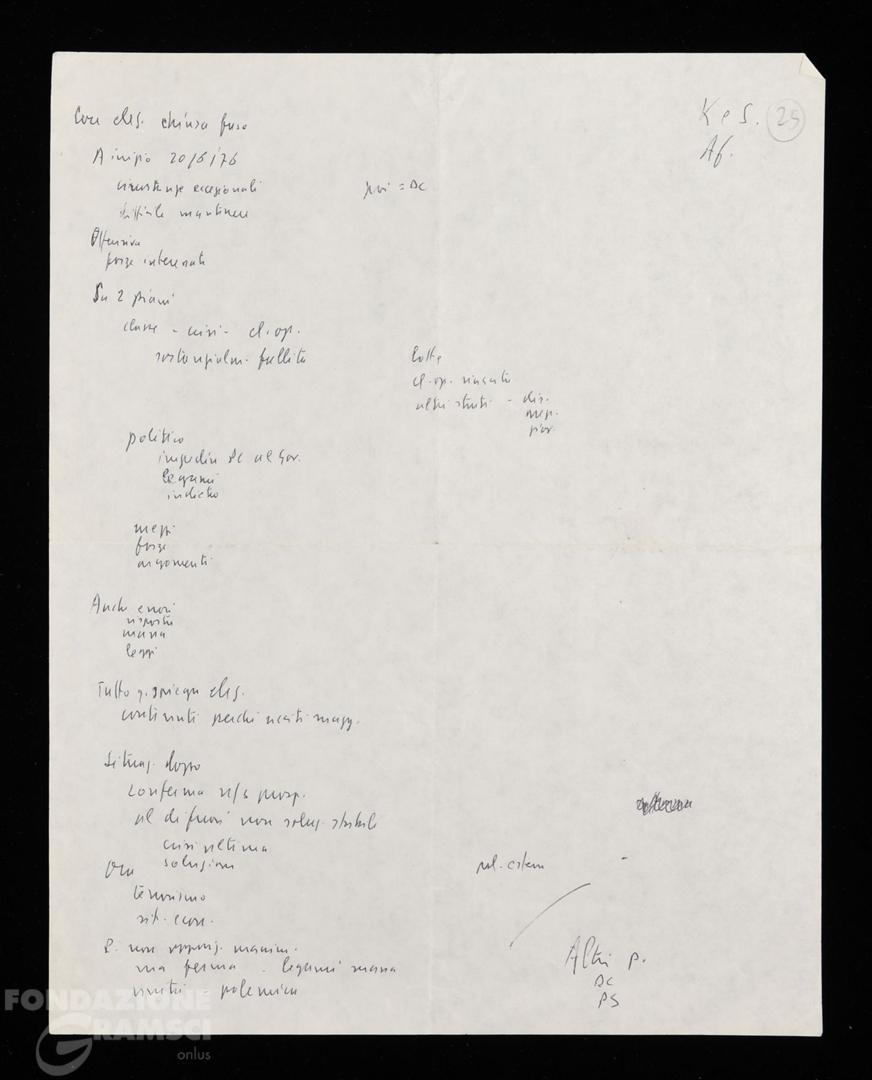 Con elez. chiusa fase
K e S. 25
Af.
A inizio 20/6/76
circostanze eccezionali
noi = DC
difficile mantenere
Offensiva
forze interessate
Su 2 piani
classe - crisi - cl. op.
sostanzialm. fallita
lotte
cl. op. riuscita
altri strati - dis.
mezz.
giov.
politico
impedire PC al Gov.
legami
indietro
mezzi
forze
argomenti
Anche errori
risposta
massa
leggi
Tutto q. spiega elez.
contenuti perché usciti magg.
Situaz. dopo
conferma n/s prosp.
al di fuori non soluz. stabili
crisi ultima
soluzione
Ora
pol. estera
terrorismo
sit. econ.
P. non opposiz. massim.
ma ferma - legami massa
unità - polemica
Altri p.
DC
PS
FONDAZIONE
GRAMSCI
onlus